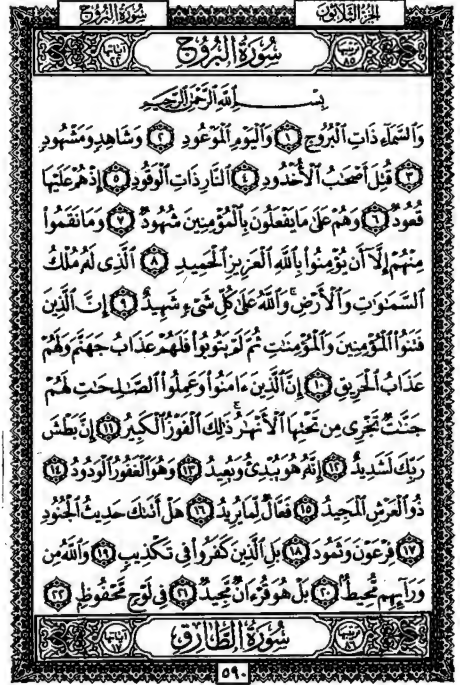 الجزء الثلاثون سورة البروج
ترتيبها ٨٥ سُورَةُ البُرُوجِ آياتها ٢٢
بِسْمِ اللَّهِ الرَّحْمَٰنِ الرَّحِيمِ
وَالسَّمَآءِ ذَاتِ الْبُرُوجِ ١ وَالْيَوْمِ الْمَوْعُودِ ٢ وَشَاهِدٍ وَمَشْهُودٍ
٣ قُتِلَ أَصْحَٰبُ الْأُخْدُودِ ٤ النَّارِ ذَاتِ الْوَقُودِ ٥ إِذْ هُمْ عَلَيْهَا
قُعُودٌ ٦ وَهُمْ عَلَىٰ مَا يَفْعَلُونَ بِالْمُؤْمِنِينَ شُهُودٌ ٧ وَمَا نَقَمُوا
مِنْهُمْ إِلَّآ أَن يُؤْمِنُوا بِاللَّهِ الْعَزِيزِ الْحَمِيدِ ٨ الَّذِى لَهُ مُلْكُ
السَّمَٰوَٰتِ وَالْأَرْضِ ۚ وَاللَّهُ عَلَىٰ كُلِّ شَىْءٍ شَهِيدٌ ٩ إِنَّ الَّذِينَ
فَتَنُوا الْمُؤْمِنِينَ وَالْمُؤْمِنَٰتِ ثُمَّ لَمْ يَتُوبُوا فَلَهُمْ عَذَابُ جَهَنَّمَ وَلَهُمْ
عَذَابُ الْحَرِيقِ ١٠ إِنَّ الَّذِينَ ءَامَنُوا وَعَمِلُوا الصَّٰلِحَٰتِ لَهُمْ
جَنَّٰتٌ تَجْرِى مِن تَحْتِهَا الْأَنْهَٰرُ ۚ ذَٰلِكَ الْفَوْزُ الْكَبِيرُ ١١ إِنَّ بَطْشَ
رَبِّكَ لَشَدِيدٌ ١٢ إِنَّهُ هُوَ يُبْدِئُ وَيُعِيدُ ١٣ وَهُوَ الْغَفُورُ الْوَدُودُ ١٤
ذُو الْعَرْشِ الْمَجِيدُ ١٥ فَعَّالٌ لِّمَا يُرِيدُ ١٦ هَلْ أَتَىٰكَ حَدِيثُ الْجُنُودِ
١٧ فِرْعَوْنَ وَثَمُودَ ١٨ بَلِ الَّذِينَ كَفَرُوا فِى تَكْذِيبٍ ١٩ وَاللَّهُ مِن
وَرَآئِهِم مُّحِيطٌ ٢٠ بَلْ هُوَ قُرْءَانٌ مَّجِيدٌ ٢١ فِى لَوْحٍ مَّحْفُوظٍ ٢٢
ترتيبها ٨٦ سُورَةُ الطَّارِقِ آياتها ١٧
٥٩٠